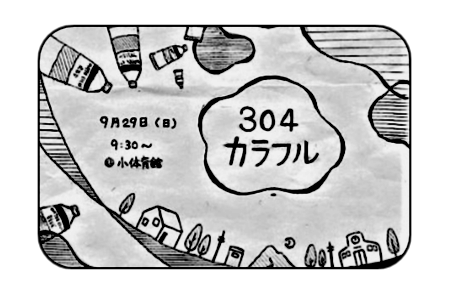 9月29日(日)
9:30～
@小体育館
304
カラフル